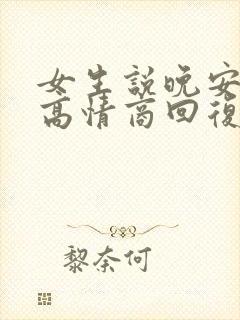 女生説晚安
高情商回復
黎奈何